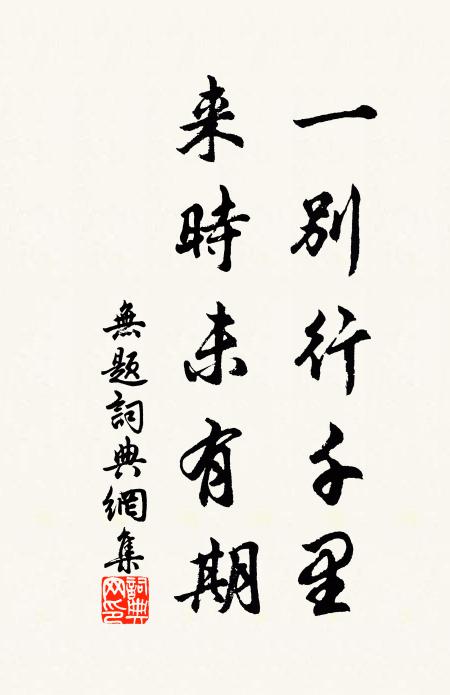 一别行千里
来時未有期
無題詞典網集
詞典网印